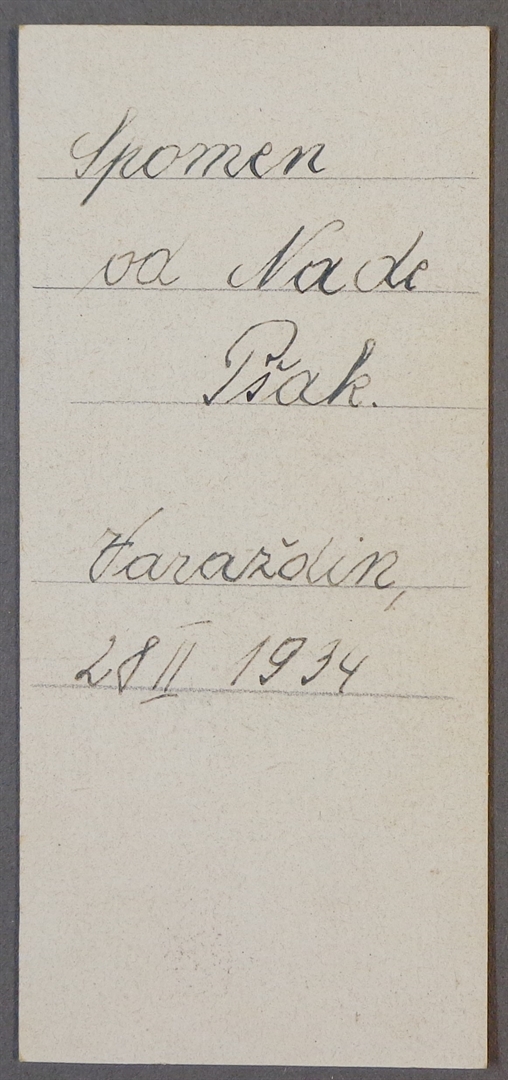 Spomen
od Nade
Pšak.
Varaždin,
28 II 1934